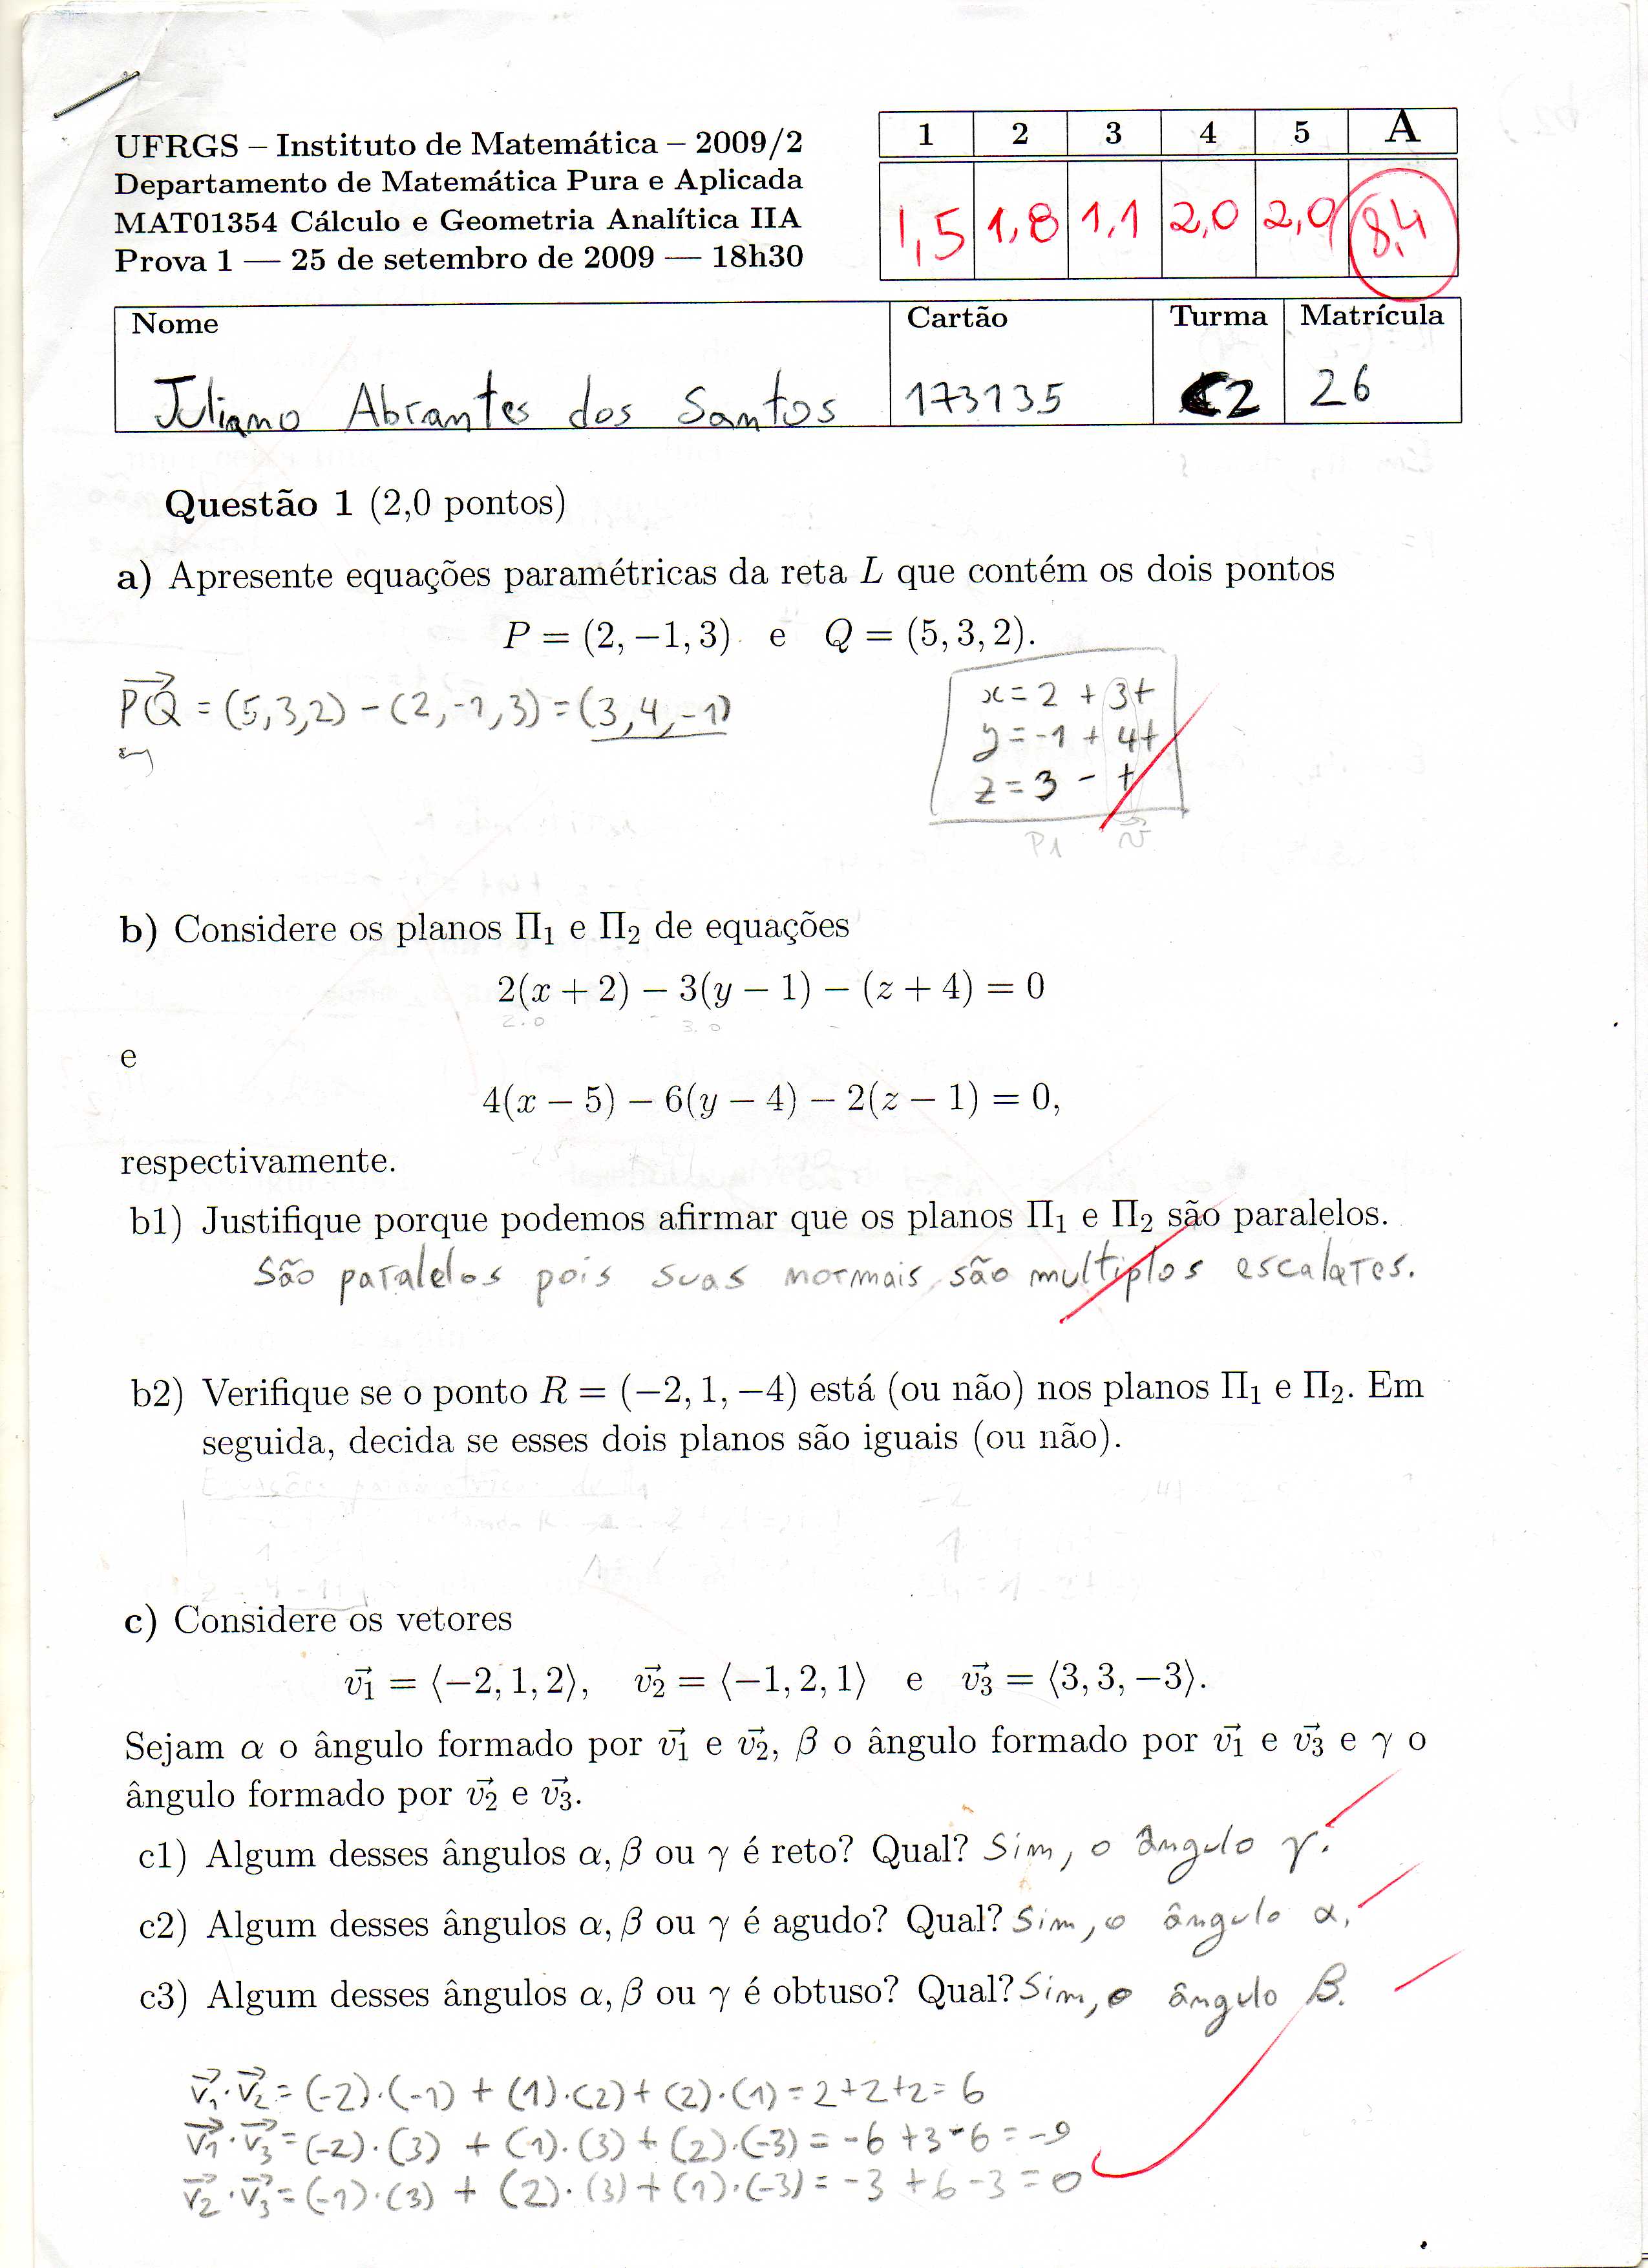 UFRGS – Instituto de Matemática – 2009/2
Departamento de Matemática Pura e Aplicada
MAT01354 Cálculo e Geometria Analítica IIA
Prova 1 — 25 de setembro de 2009 — 18h30
1 2 3 4 5 A
1,5 1,8 1,1 2,0 2,0 8,4
Nome Cartão Turma Matrícula
Juliano Abrantes dos Santos 173135 C2 26
Questão 1 (2,0 pontos)
a) Apresente equações paramétricas da reta L que contém os dois pontos
P = (2, −1, 3) e Q = (5, 3, 2).
PQ⃗ = (5,3,2) - (2,-1,3) = (3,4,-1)
x = 2 + 3t
y = -1 + 4t
z = 3 - t
P1 v⃗
b) Considere os planos Π₁ e Π₂ de equações
2(x + 2) − 3(y − 1) − (z + 4) = 0
2.0 3.0
e
4(x − 5) − 6(y − 4) − 2(z − 1) = 0,
respectivamente.
b1) Justifique porque podemos afirmar que os planos Π₁ e Π₂ são paralelos.
São paralelos pois suas normais são multiplos escalares.
b2) Verifique se o ponto R = (−2, 1, −4) está (ou não) nos planos Π₁ e Π₂. Em
seguida, decida se esses dois planos são iguais (ou não).
c) Considere os vetores
v⃗₁ = ⟨−2, 1, 2⟩, v⃗₂ = ⟨−1, 2, 1⟩ e v⃗₃ = ⟨3, 3, −3⟩.
Sejam α o ângulo formado por v⃗₁ e v⃗₂, β o ângulo formado por v⃗₁ e v⃗₃ e γ o
ângulo formado por v⃗₂ e v⃗₃.
c1) Algum desses ângulos α, β ou γ é reto? Qual? Sim, o ângulo γ.
c2) Algum desses ângulos α, β ou γ é agudo? Qual? Sim, o ângulo α.
c3) Algum desses ângulos α, β ou γ é obtuso? Qual? Sim, o ângulo β.
v⃗₁·v⃗₂ = (-2)·(-1) + (1)·(2) + (2)·(1) = 2+2+2 = 6
v⃗₁·v⃗₃ = (-2)·(3) + (1)·(3) + (2)·(-3) = -6 +3 -6 = -9
v⃗₂·v⃗₃ = (-1)·(3) + (2)·(3) + (1)·(-3) = -3 + 6 - 3 = 0